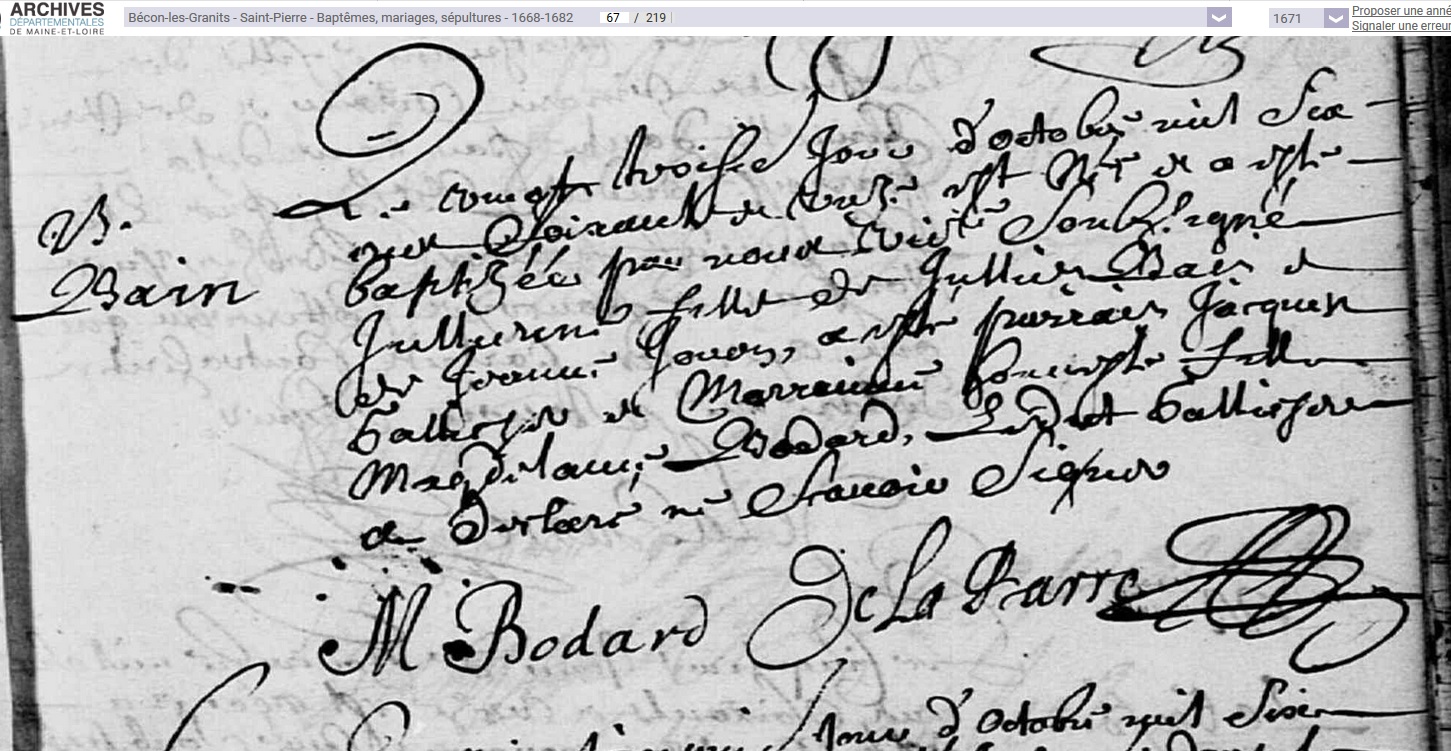 ARCHIVES
DÉPARTEMENTALES
DE MAINE-ET-LOIRE
Bécon-les-Granits - Saint-Pierre - Baptêmes, mariages, sépultures - 1668-1682
67 / 219
1671
Proposer une anné
Signaler une erreur
B.
Bain
Le vingt troisie Jour d'octobre mil Six
cent Soixante et unze est Née et a esté
baptizée par nous Curé Soubsigné
Jullienne fille de Jullien Bain et
de Jeanne Jouon, a esté parrain Jacques
Gallisson et Marrainne honneste fille
Magdelaine Bodard, Ledit Gallisson
a declaré ne Scavoir Signer
M Bodard De La Barre
Jour d'octobre mil Six